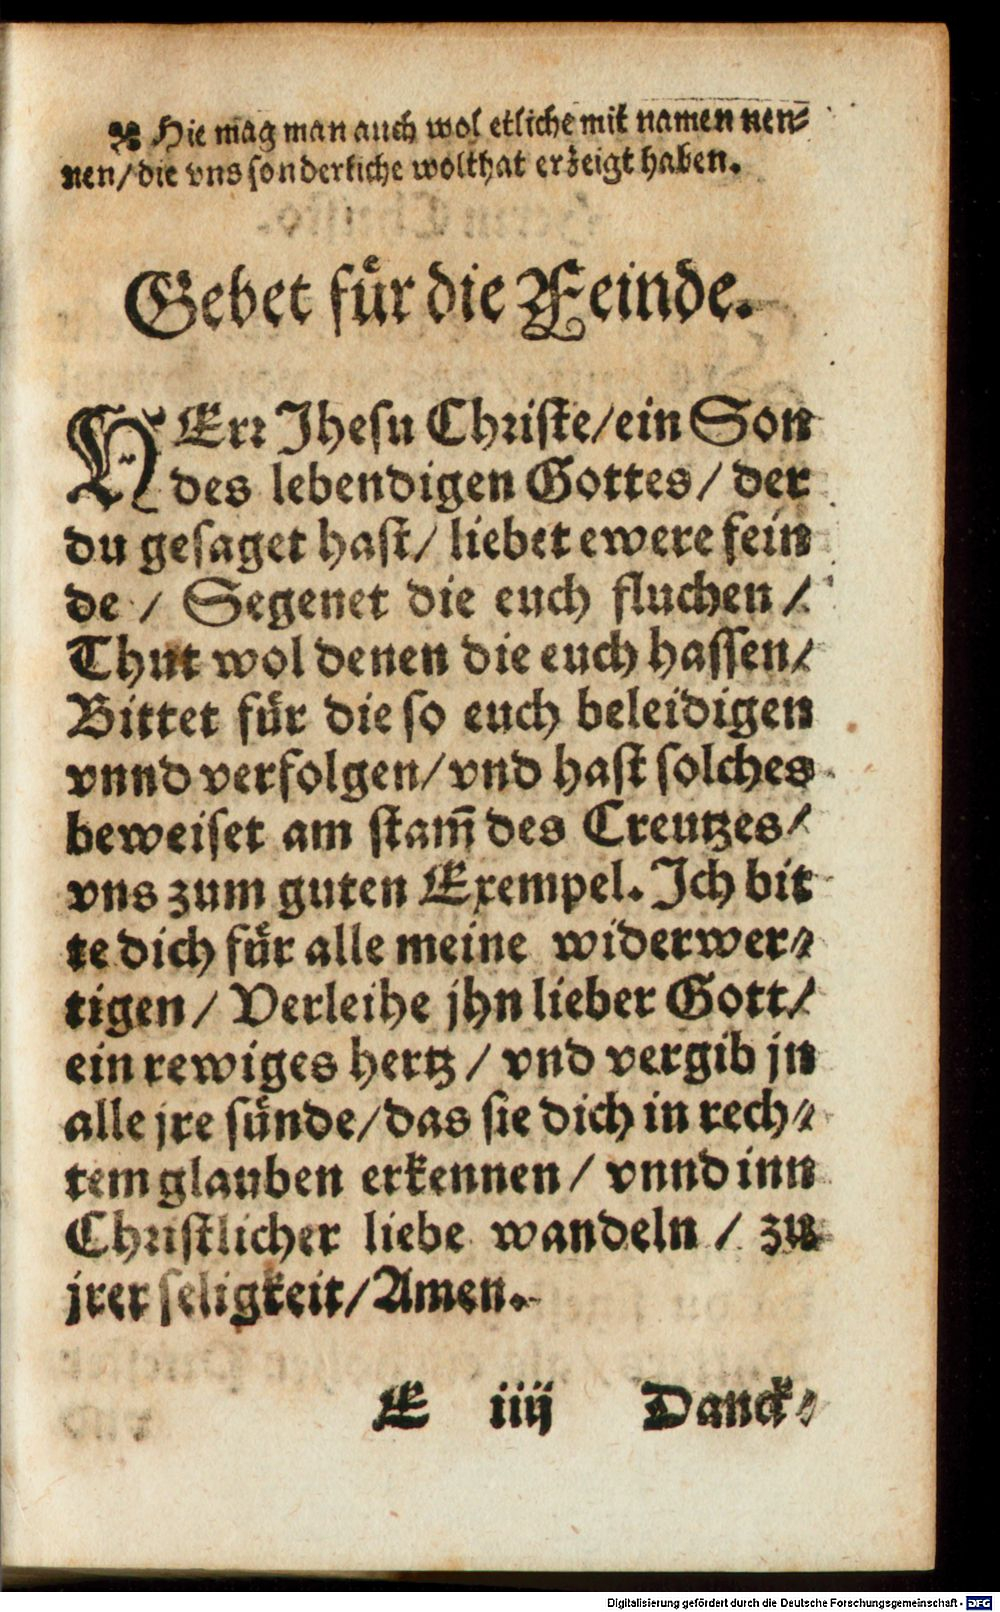 ✠ Hie mag man auch wol etliche mit namen nen⸗
nen/ die vns sonderliche wolthat erzeigt haben.
Gebet fuͤr die Feinde.
HErr Jhesu Christe/ ein Son
des lebendigen Gottes/ der
du gesaget hast/ liebet ewere fein
de / Segenet die euch fluchen /
Thut wol denen die euch hassen/
Bittet fuͤr die so euch beleidigen
vnnd verfolgen/ vnd hast solches
beweiset am stam̄ des Creutzes/
vns zum guten Exempel. Ich bit
te dich fuͤr alle meine widerwer⸗
tigen / Verleihe jhn lieber Gott/
ein rewiges hertz / vnd vergib jn
alle jre suͤnde/ das sie dich in rech⸗
tem glauben erkennen / vnnd inn
Christlicher liebe wandeln / zu
jrer seligkeit/ Amen.
E iiij Danck⸗
Digitalisierung gefördert durch die Deutsche Forschungsgemeinschaft - DFG